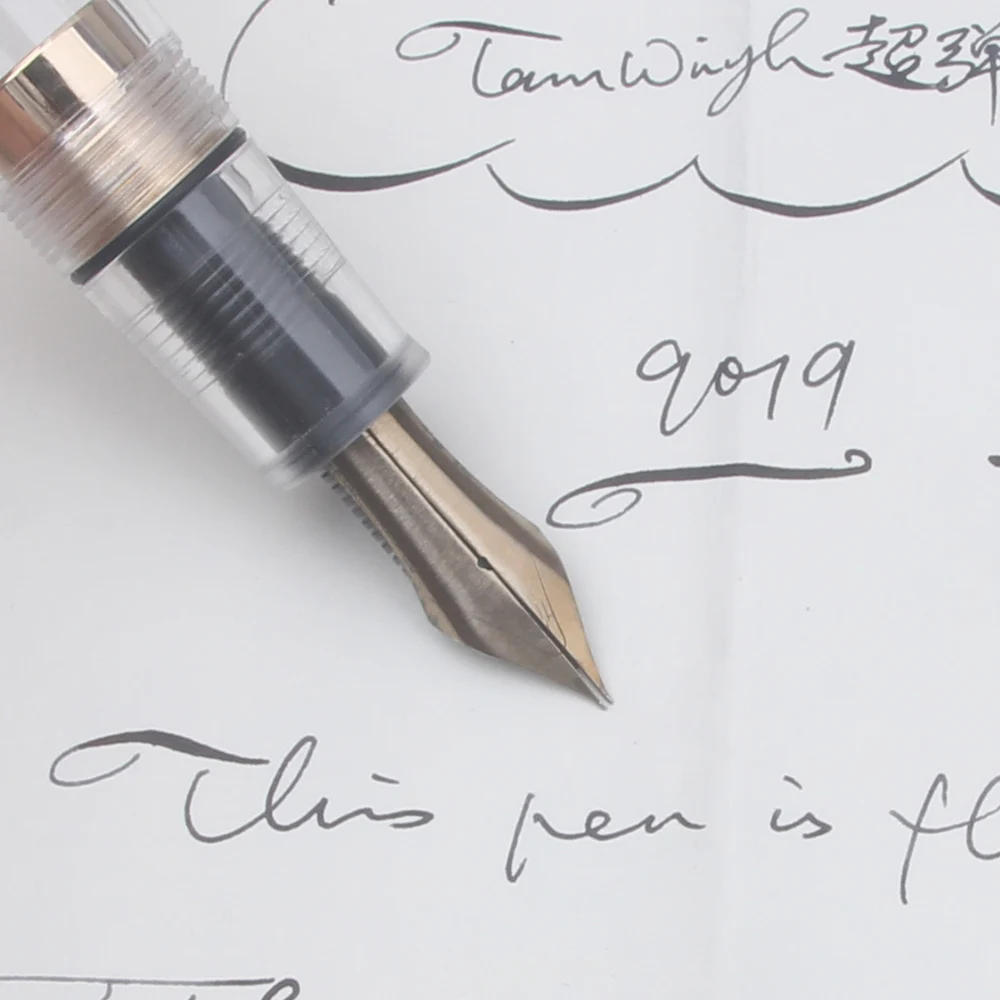 TamWingh 超弹
2019
This pen is fl